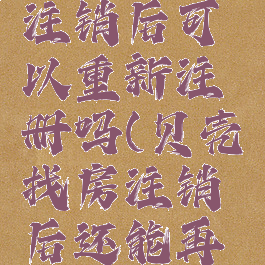 注销后可
以重新注
册吗(贝壳
找房注销
后还能再